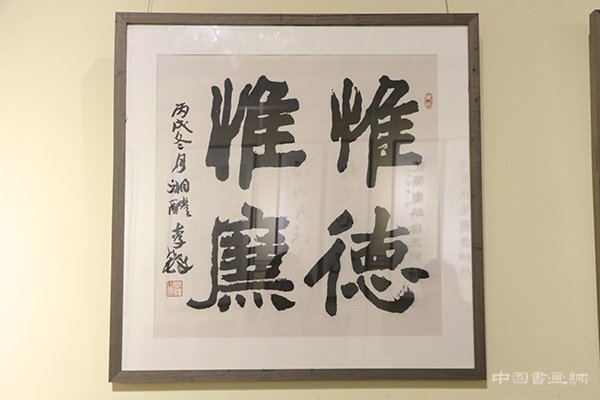 惟德
惟廉
丙戌冬月湘醴李
中国书画网